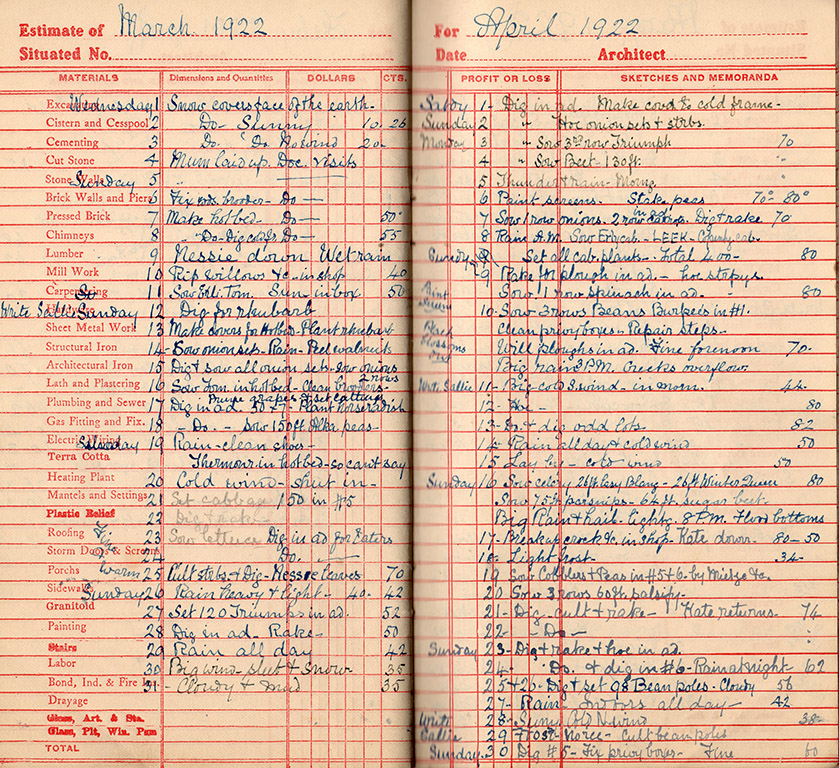 Estimate of March 1922
Situated No.
MATERIALS Dimensions and Quantities DOLLARS CTS.
Wednesday 1 Snow covers face of the earth.
Cistern and Cesspool 2 Do- Sunny 10. 26
Cementing 3 Do. Do No wind 20
Cut Stone 4 Mum laid up. Doc. visits
Stone Walls Sunday 5
Brick Walls and Piers 6 Fix brooder- Do-
Pressed Brick 7 Make hot bed- Do- 50°
Chimneys 8 "Do- Dig cold fr Do- 55
Lumber 9 Nessie down Wet rain
Mill Work 10 Rip willows &c- in shop 40
Carpentering 11 Sow Erli. Tom. Sun in box 50
Write Sallie Sunday 12 Dig for rhubarb
Sheet Metal Work 13 Make covers for Hotbed- Plant rhubarb
Structural Iron 14- Sow onion sets- Rain- Peel walnuts
Architectural Iron 15 Dig & sow all onion sets- Sow onions
2 rows
Lath and Plastering 16 Sow Tom. in hot bed- Clean brooders-
Prune grapes & set cuttings
Plumbing and Sewer 17 Dig in ad. 50x7- Plant horseradish
Gas Fitting and Fix. 18 - Do. - Sow 150 ft. Alka peas-
Electric Wiring Sunday 19 Rain- clean shoes-
Terra Cotta Thermom. in hot bed- so can't say
Heating Plant 20 Cold wind- shut in-
Mantels and Settings 21 Set cabbage 150 in #5
Plastic Relief 22 Dig & rake
Roofing Fine 23 Sow lettuce Dig in ad for taters
Storm Doors & Screens 24 Do.
Porchs Warm 25 Cult strbs & Dig- Nessie leaves 70
Sidewalk Sunday 26 Rain heavy & light- 40- 42
Granitold 27 Set 120 Triumphs in ad. 52
Painting 28 Dig in ad- Rake- 50
Stairs 29 Rain all day 42
Labor 30 Big wind- sleet & snow 35
Bond, Ind. & Fire 31 - Cloudy & mud 35
Drayage
Glass, Art. & Sta.
Glass, Plt, Win. Pam
TOTAL
For April 1922
Date Architect
PROFIT OR LOSS SKETCHES AND MEMORANDA
Satdy 1- Dig in ad. Make cov'd to cold frame-
Sunday 2 " Hoe onion sets & strbs.
Monday 3 " Sow 3rd row Triumph 70
4 " Sow Beet- 130 ft. "
5 Thunder & rain- Morng
6 Paint screens. Stake peas 70° 80°
7 Sow 1 row onions. 2 row carrots Dig & rake 70
8 Rain A.M. Sow Erly cab. - LEEK - cab.
Sunday 9 Set all cab. plants- Total 400- 80
9 Rake for plough in ad- hoe
Sow 1 row Spinach in ad. 80
10- Sow 3 rows Beans Burpees in #1.
Peach Clean privy boxes- Repair steps-
blossoms Will ploughs in ad. Fine forenoon 70-
out Big rain 3 P.M. Creeks overflow
Write Sallie 11- Big cold S. wind- in room. 44-
12- Hoe- 80
13- Do & dig odd lots. 82
14- Rain all day & cold wind 50
15 Lay by- cold wind 50
Sunday 16 Sow celery 26 ft Easy Blanc- 26 ft Winter Queen 80
Sow 75 ft parsnips- 64 ft sugar beet.
Big Rain & hail- lightg. 8 P.M. Flood bottoms
17- Break up crock &c. in shop- Kate down. 80-50
18- Light frost 34-
19 Sow Cobblers & Peas in #5 & 6- by Midge &c.
20- Sow 3 rows 60 ft salsify.
21- Dig, cult & rake- Kate returns. 74
22- - Do-
Sunday 23- Dig & rake & hoe in ad.
24- Do. & dig in #6- Rain at night- 62
25 & 26- Dig & set 98 Bean poles- Cloudy 56
27- Rain- Indoors all day- 42
Write 28- Sunny Cold N. wind 38-
Sallie 29 Frost- No ice- Cult bean poles
Sunday 30 Dig #5- Fix privy boxes- Fine 60